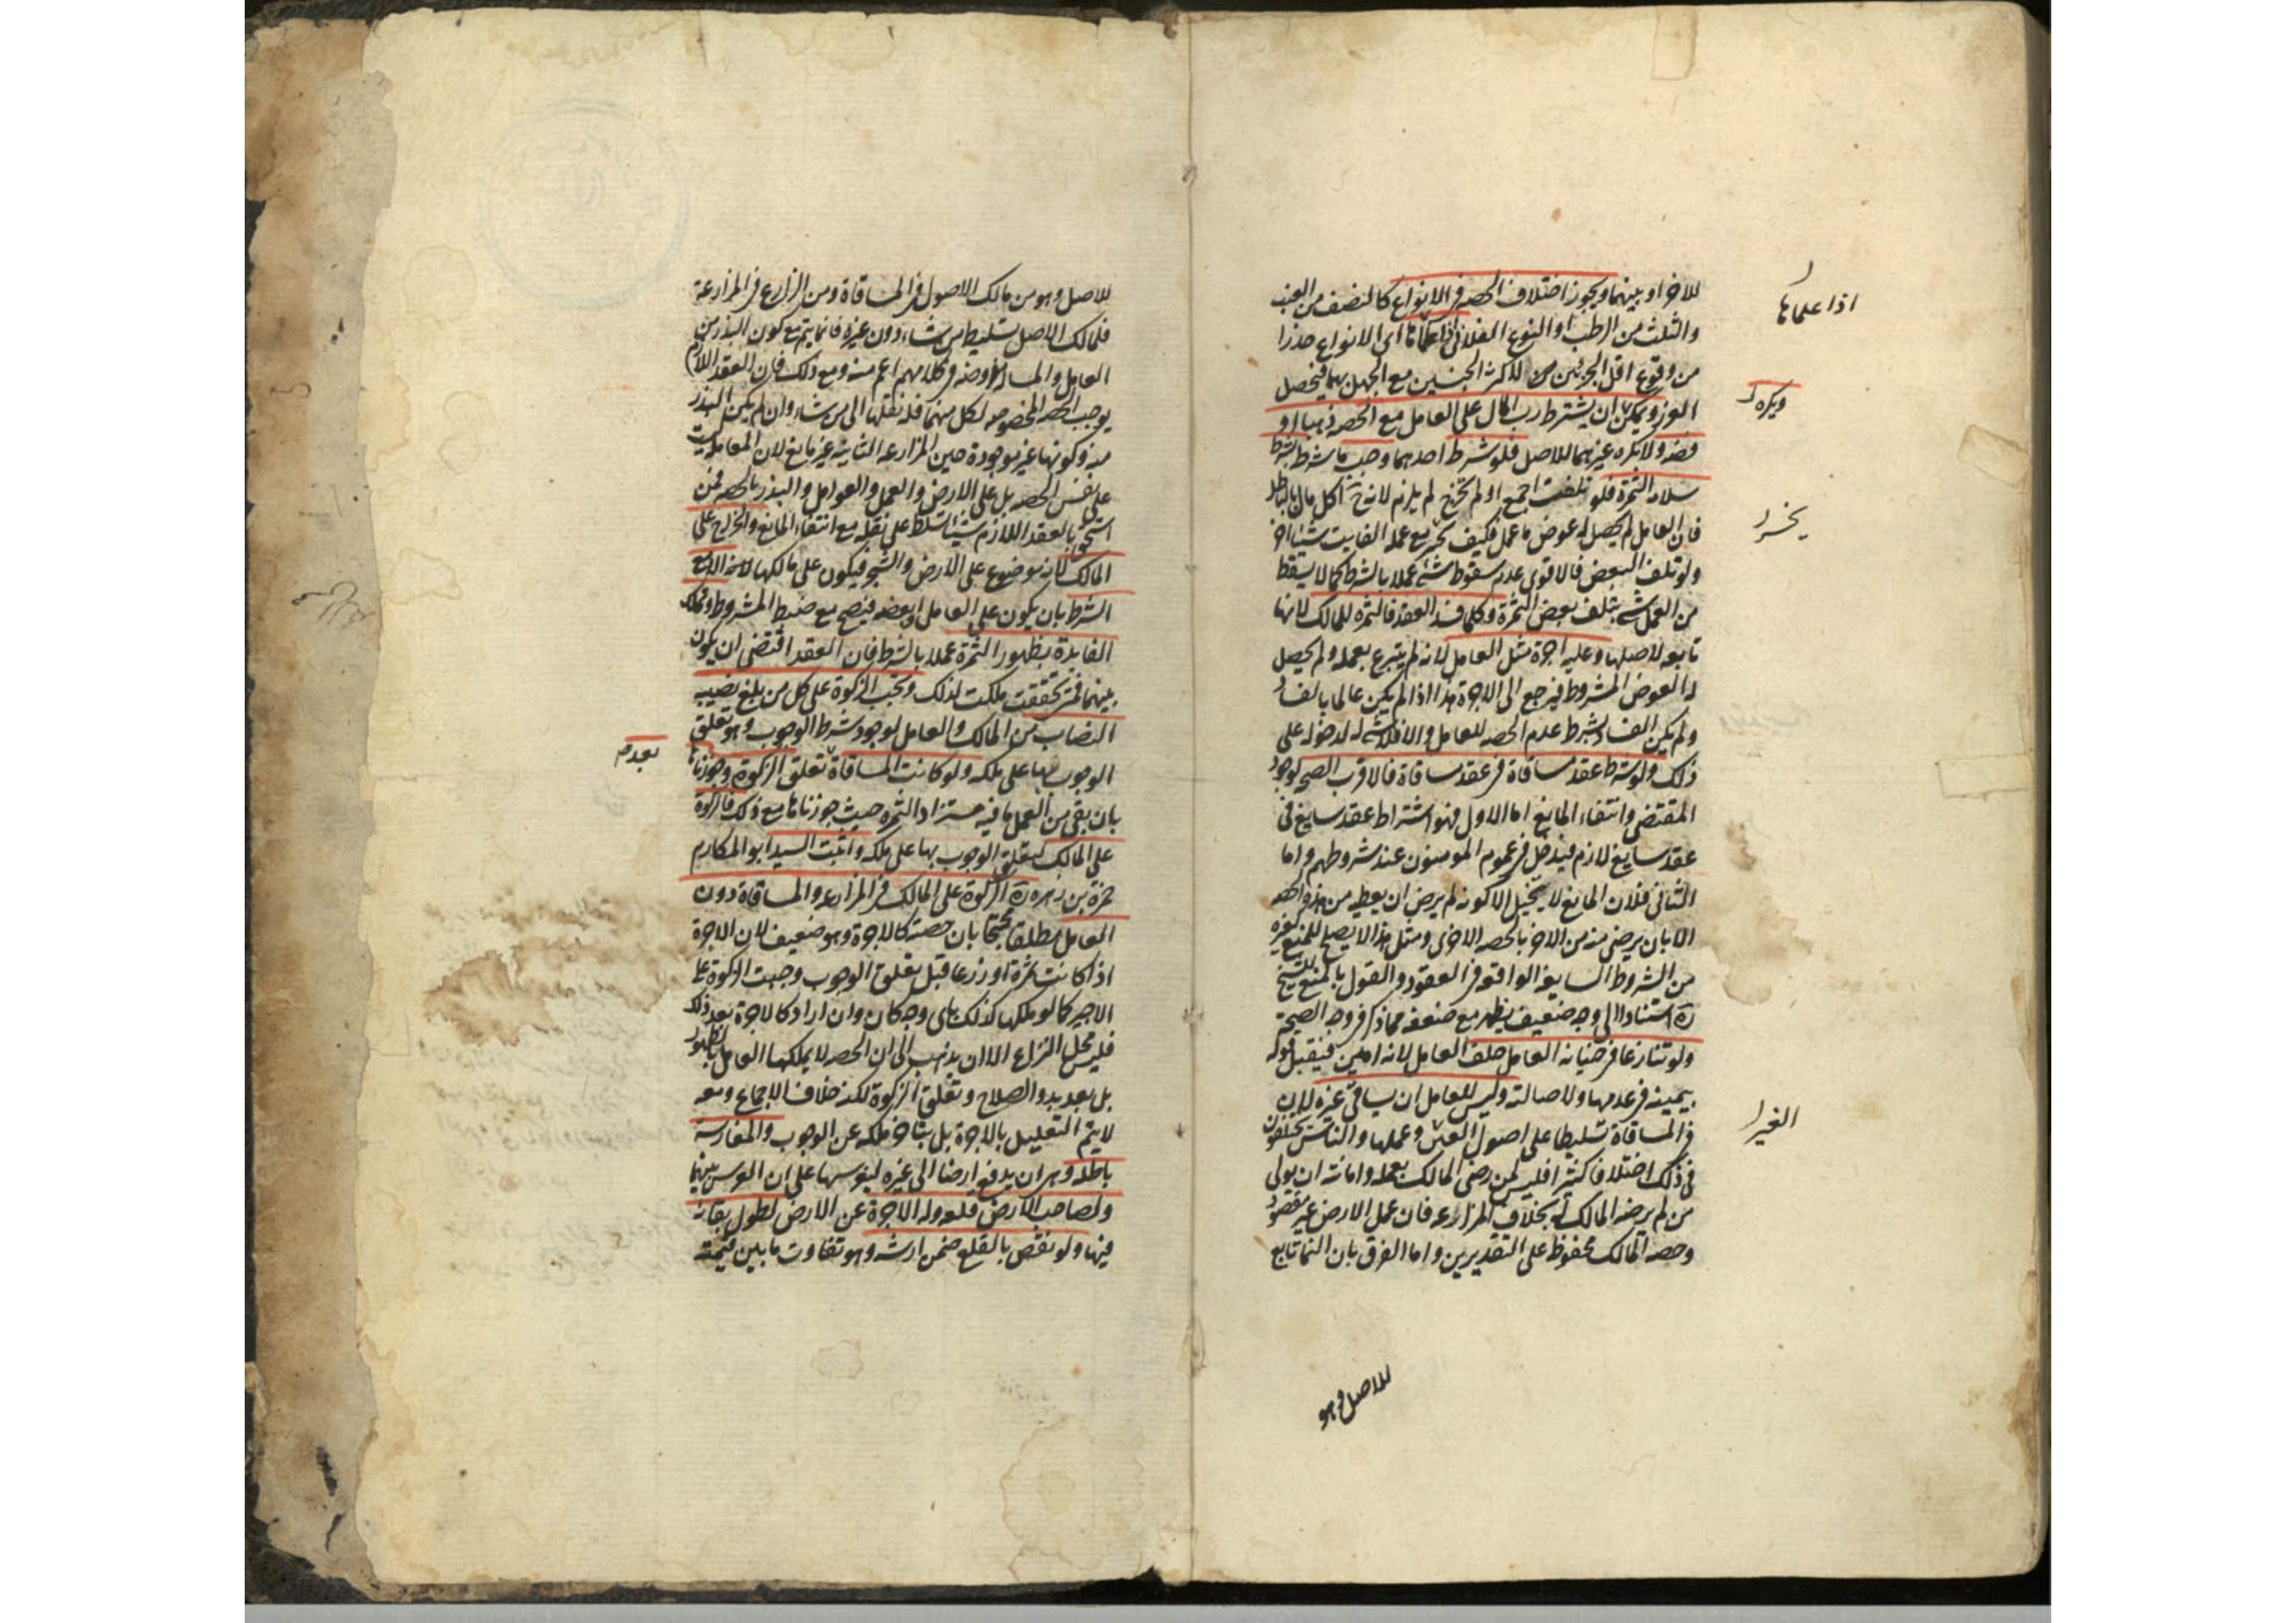 للاخر او بينهما ويجوز اختلاف الحصه في الانواع كالنصف من العنب
والثلث من الرطب او النوع الفلاني اذا علماها اى الانواع حذرا
من وقوع اقل الجزئين لاكثر الجنسين مع الجهل بهما فيحصل
الغرر ويكره ان يشترط رب المال على العامل مع الحصه ذهبا او
فضه ولا يكره غيرهما للاصل فلو شرط احدهما وجب ما شرط بشرط
سلامه الثمرة فلو تلفت اجمع او لم تخرج لم يلزم لانه ح اكل مال بالباطل
فان العامل لم يحصل له عوض ما عمل فكيف يخسر مع عمله الفايت شيئا اخر
ولو تلف البعض فالاقوى عدم سقوط شئ عملا بالشرط كما لا يسقط
من العمل شئ بتلف بعض الثمرة وكلما فسد العقد فالثمره للمالك لانها
تابعه لاصلها وعليه اجرة مثل العامل لانه لم يتبرع بعمله ولم يحصل
له العوض المشروط فيرجع الى الاجرة هذا اذا لم يكن عالما بالفساد
ولم يكن الفساد بشرط عدم الحصه للعامل والا فلا شئ له لدخوله على
ذلك ولو شرط عقد مساقاة في عقد مساقاة فالاقرب الصحه لوجود
المقتضى وانتفاء المانع اما الاول فهو اشتراط عقد سايغ فى
عقد سايغ لازم فيدخل في عموم المومنون عند شروطهم واما
الثانى فلان المانع لا يتخيل الا كونه لم يرض ان يعطيه من هذه الحصه
الا بان يرضى منه من الاخر بالحصه الاخرى ومثل هذا لا يصلح للمنع كغيره
من الشروط السايغه الواقعه في العقود والقول بالمنع للشيخ
ره استنادا الى وجه ضعيف يظهر مع ضعفه مما ذكر في وجه الصحة
ولو تنازعا في خيانه العامل حلف العامل لانه امين فيقبل قوله
بيمينه في عدمها ولاصالته وليس للعامل ان يساقى غيره لان
في المساقاة تسليطا على اصول الغير وعملها والناس يختلفون
فى ذلك اختلافا كثيرا فليس لمن رضى المالك بعمله وامانته ان يولى
من لم يرضه المالك له بخلاف المزارعه فان عمل الارض غير مقصود
وحصه المالك محفوظ على التقديرين واما الفرق بان النما تابع
للاصل وهو
اذا علماها
ويكره
يخسر
الغير
للاصل وهو من مالك الاصول في المساقاة ومن الزارع في المزارعة
فلمالك الاصل تسليط من شاء دون غيره فانما يتم مع كون البذر من
العامل والمسا وضه وكلامهم اعم منه ومع ذلك فان العقد اللازم
يوجب الحصه المخصوصه لكل منهما فله نقلها الى من شاء وان لم يكن البذر
منه وكونها غير موجودة حين المزارعه الثانيه غير مانع لان المعامله ليست
على نفس الحصه بل على الارض والعمل والعوامل والبذر بالحصه فمن
استحق بالعقد اللازم شيئا تسلط على نقله مع انتفاء المانع والخراج على
المالك لانه موضوع على الارض والشجر فيكون على مالكها الا مع
الشرط بان يكون على العامل او بعضه فيصح مع ضبط المشروط وتملك
الفايدة بظهور الثمرة عملا بالشرط فان العقد اقتضى ان يكون
بينهما فمتى تحققت ملكت لذلك وتجب الزكوة على كل من بلغ نصيبه
النصاب من المالك والعامل لوجود شرط الوجوب وهو تعلق
الوجوب بها على ملكه ولو كانت المساقاة تعلق الزكوة وجوزناها
بان بقى من العمل ما فيه مستزاد الثمره حيث جوزناها مع ذلك فالزكوة
على المالك لتعلق الوجوب بها على ملكه واثبت السيد ابو المكارم
حمزة بن زهره ره الزكوة على المالك في المزارعه والمساقاة دون
العامل مطلقا محتجا بان حصته كالاجرة وهو ضعيف لان الاجرة
اذا كانت ثمرة او زرعا قبل تعلق الوجوب وجبت الزكوة على
الاجير كما لو ملكها كذلك باى وجه كان وان اراد كالاجرة بعد ذلك
فليس محل النزاع الا ان يذهب الى ان الحصه لا يملكها العامل بالظهور
بل بعد بدو الصلاح وتعلق الزكوة لكنه خلاف الاجماع ومعه
لا يتم التعليل بالاجرة بل بتاخر ملكه عن الوجوب والمغارسة
باطله وهى ان يدفع ارضا الى غيره ليغرسها على ان الغرس بينهما
ولصاحب الارض قلعه وله الاجرة عن الارض لطول بقائه
فيها ولو نقص بالقلع ضمن ارشه وهو تفاوت ما بين قيمته
بعد